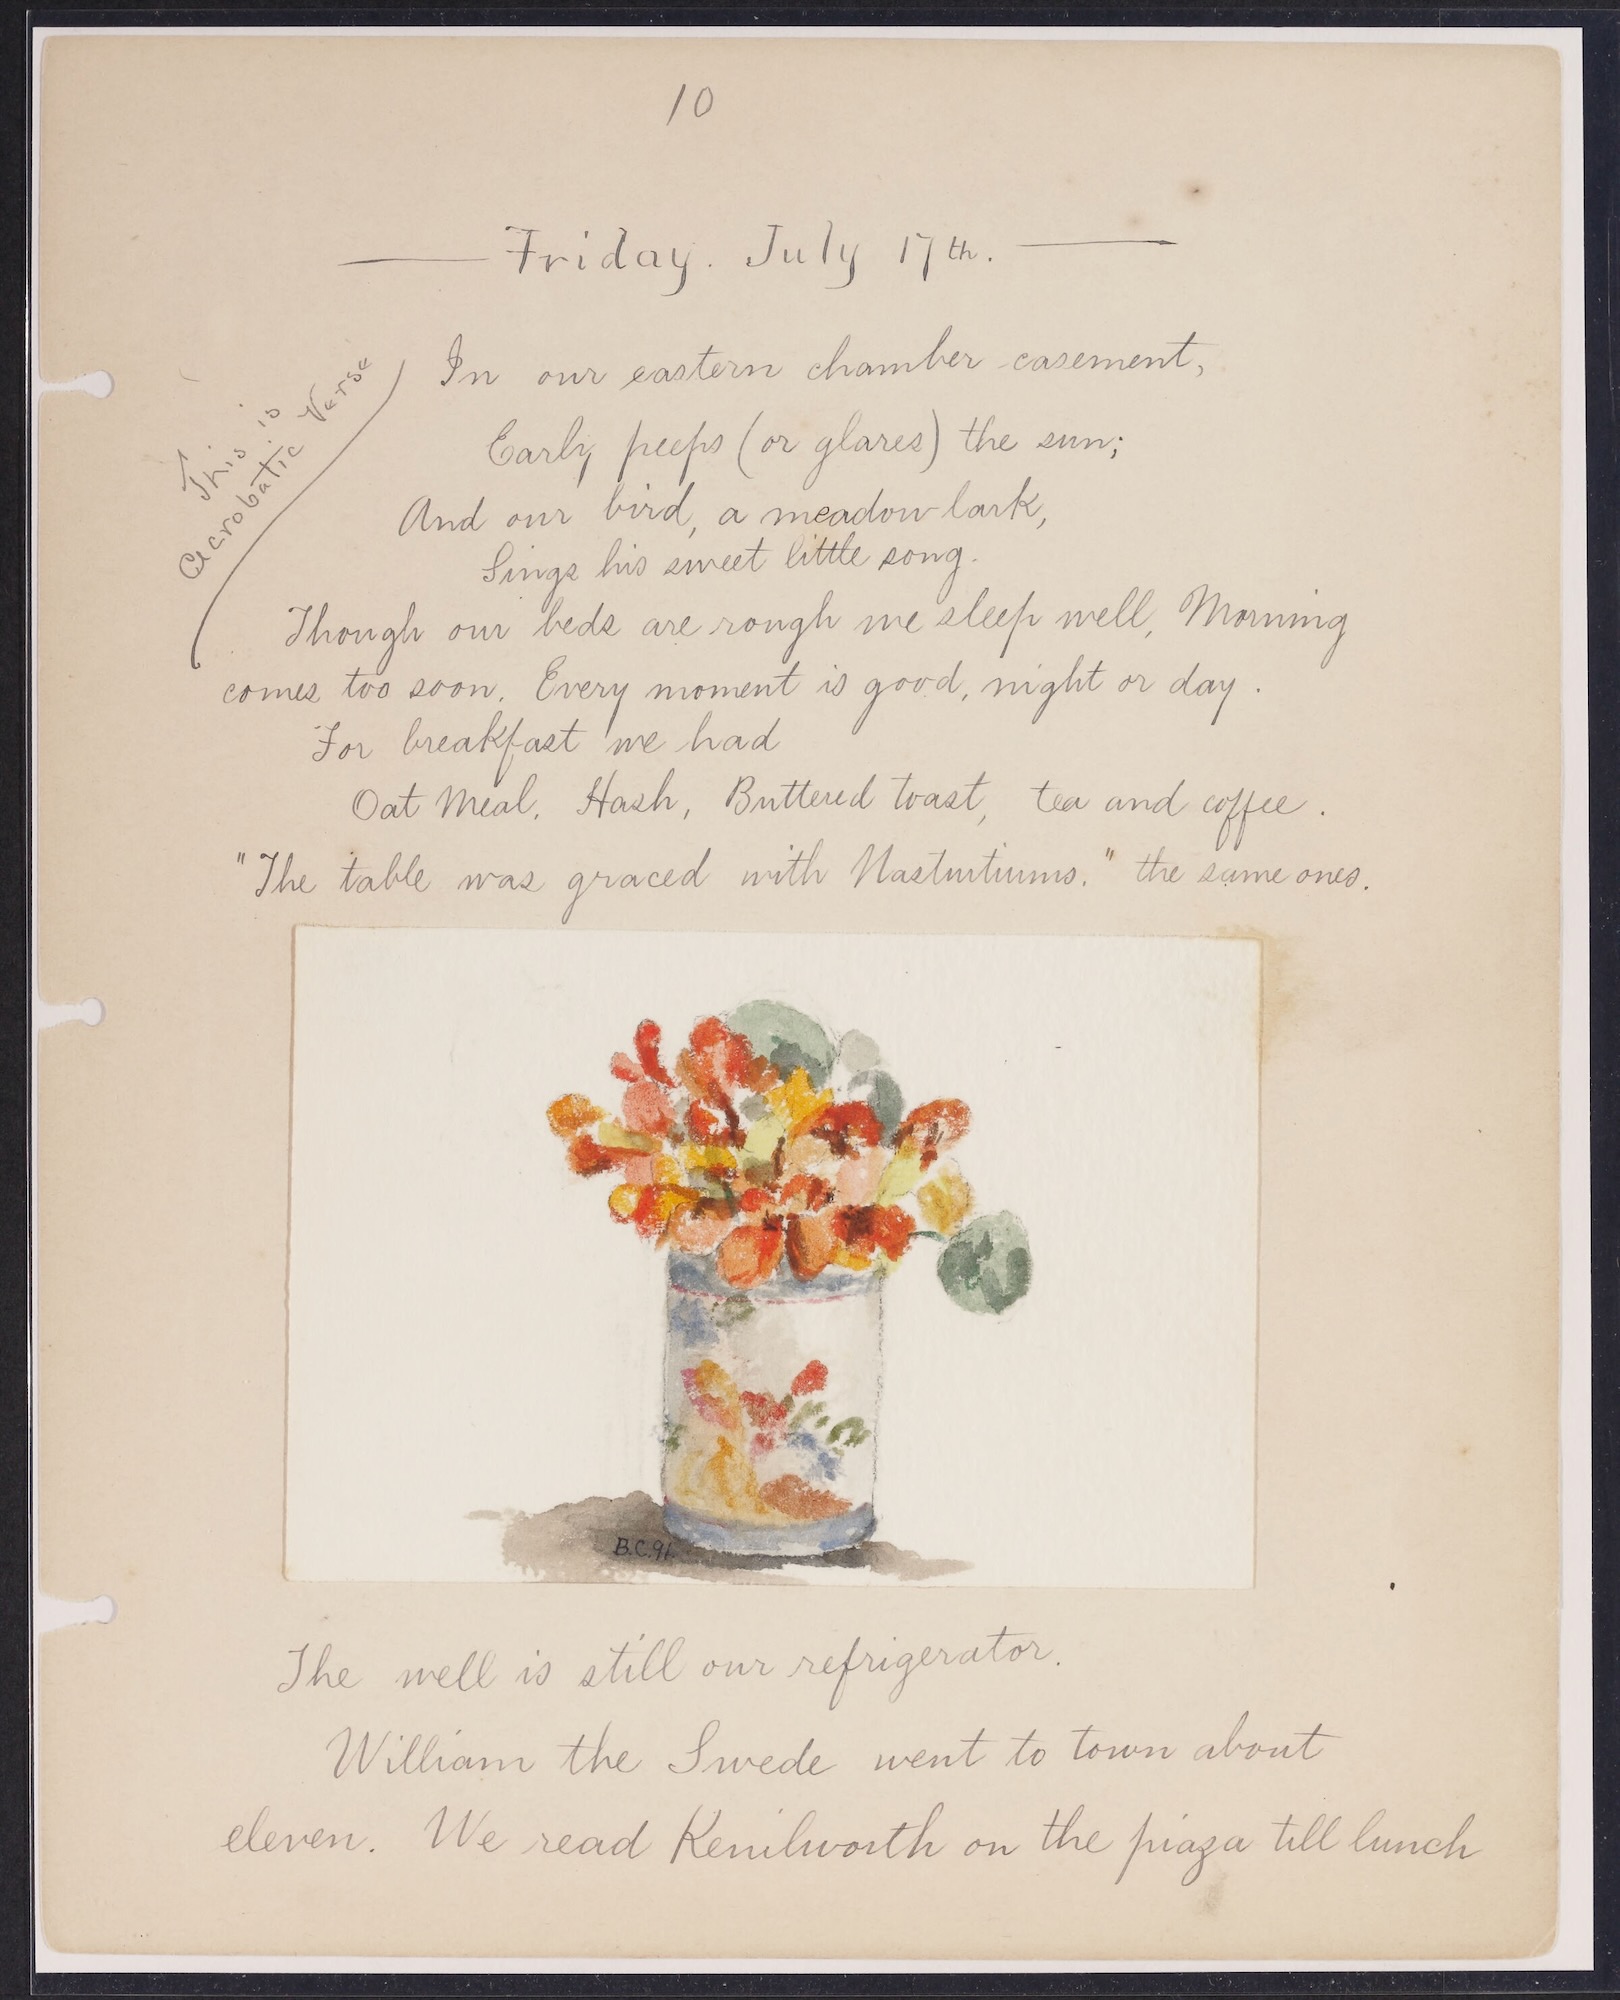 10
Friday. July 17th.
This is
Acrobatic Verse
In our eastern chamber casement,
Early peeps (or glares) the sun;
And our bird, a meadow lark,
Sings his sweet little song.
Though our beds are rough we sleep well, Morning
comes too soon. Every moment is good, night or day.
For breakfast we had
Oat Meal, Hash, Buttered toast, tea and coffee.
"The table was graced with Nasturtiums." the same ones.
B.C.91.
The well is still our refrigerator.
William the Swede went to town about
eleven. We read Kenilworth on the piaza till lunch